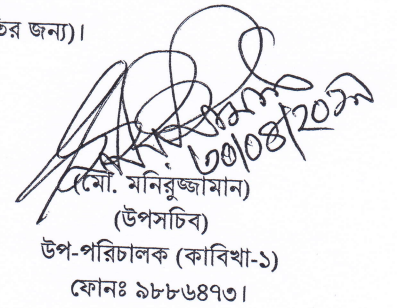 তির জন্য)।
৩০/০৪/২০১৯
(মো. মনিরুজ্জামান)
(উপসচিব)
উপ-পরিচালক (কাবিখা-১)
ফোনঃ ৯৮৮৬৪৭৩।